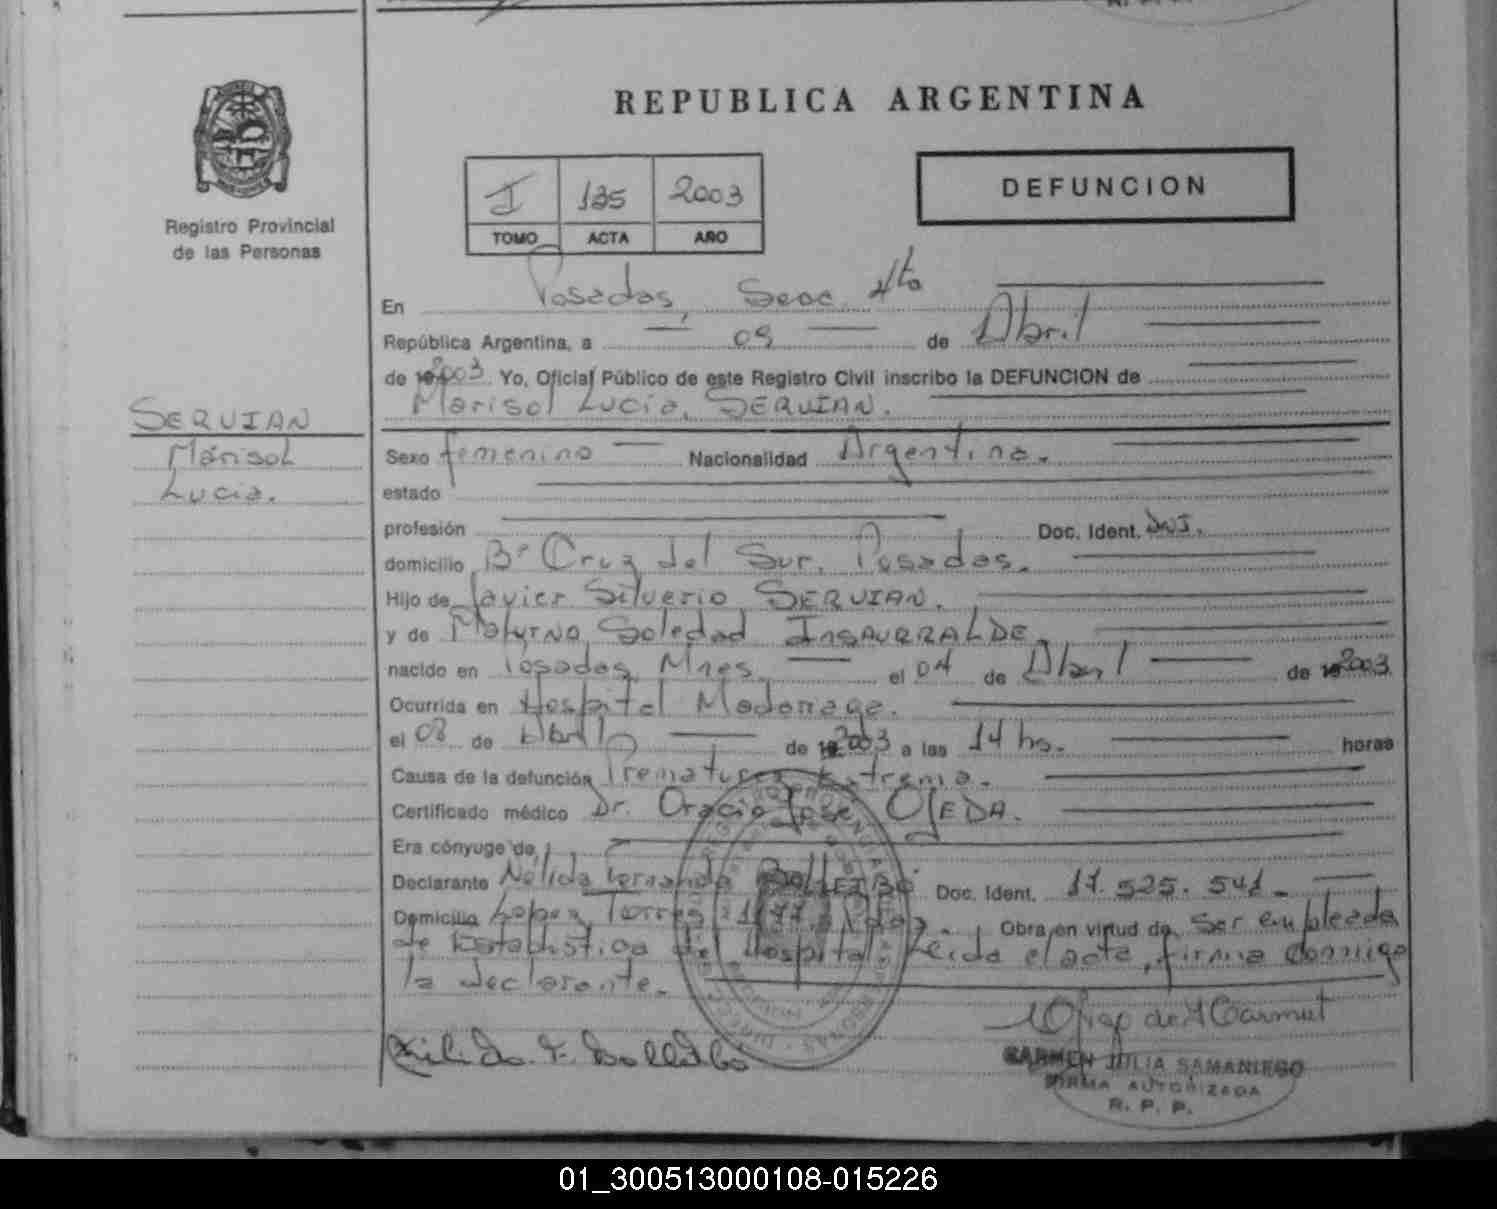 REPUBLICA ARGENTINA
Registro Provincial
de las Personas
I 135 2003
TOMO ACTA AÑO
DEFUNCION
En Posadas, Secc. 4ta
República Argentina, a 09 de Abril
de 2003. Yo, Oficial Público de este Registro Civil inscribo la DEFUNCION de
Marisol Lucia, SERVIAN.
SERVIAN
Marisol
Lucia.
Sexo femenino Nacionalidad Argentina.
estado
profesión Doc. Ident. DNI.
domicilio Bº Cruz del Sur. Posadas.
Hijo de Javier Silverio SERVIAN.
y de Soledad INSAURRALDE.
nacido en Posadas, Mnes. el 04 de Abril de 2003.
Ocurrida en Hospital Madariaga.
el 08 de Abril de 2003 a las 14 hs. horas
Causa de la defunción Prematurez Extrema.
Certificado médico Dr. Oracio José OJEDA.
Era cónyuge de
Declarante Nélida Fernanda Doc. Ident. 17.525.541.
Domicilio Lopez Torres 1177, Pdas. Obra en virtud de Ser empleada
de Estadistica del Hospital Leida el acta, firma conmigo
la declarante.
CARMEN JULIA SAMANIEGO
FIRMA AUTORIZADA
R. P. P.
01_300513000108-015226